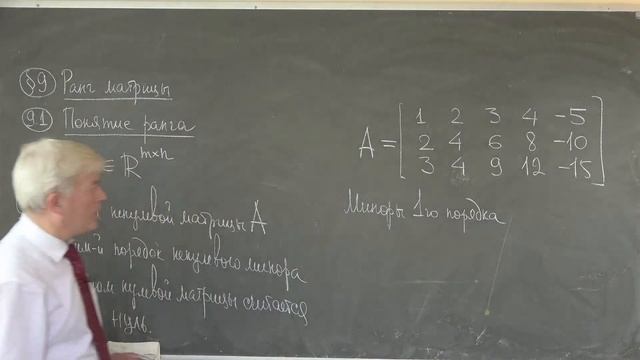 §9 Ранг матрицы
9.1 Понятие ранга
∈ ℝ^{m×n}
ненулевой матрицы A
порядок ненулевого минора
нулевой матрицы считается
нуль.
A = [ 1 2 3 4 -5
2 4 6 8 -10
3 4 9 12 -15 ]
Миноры 1го порядка